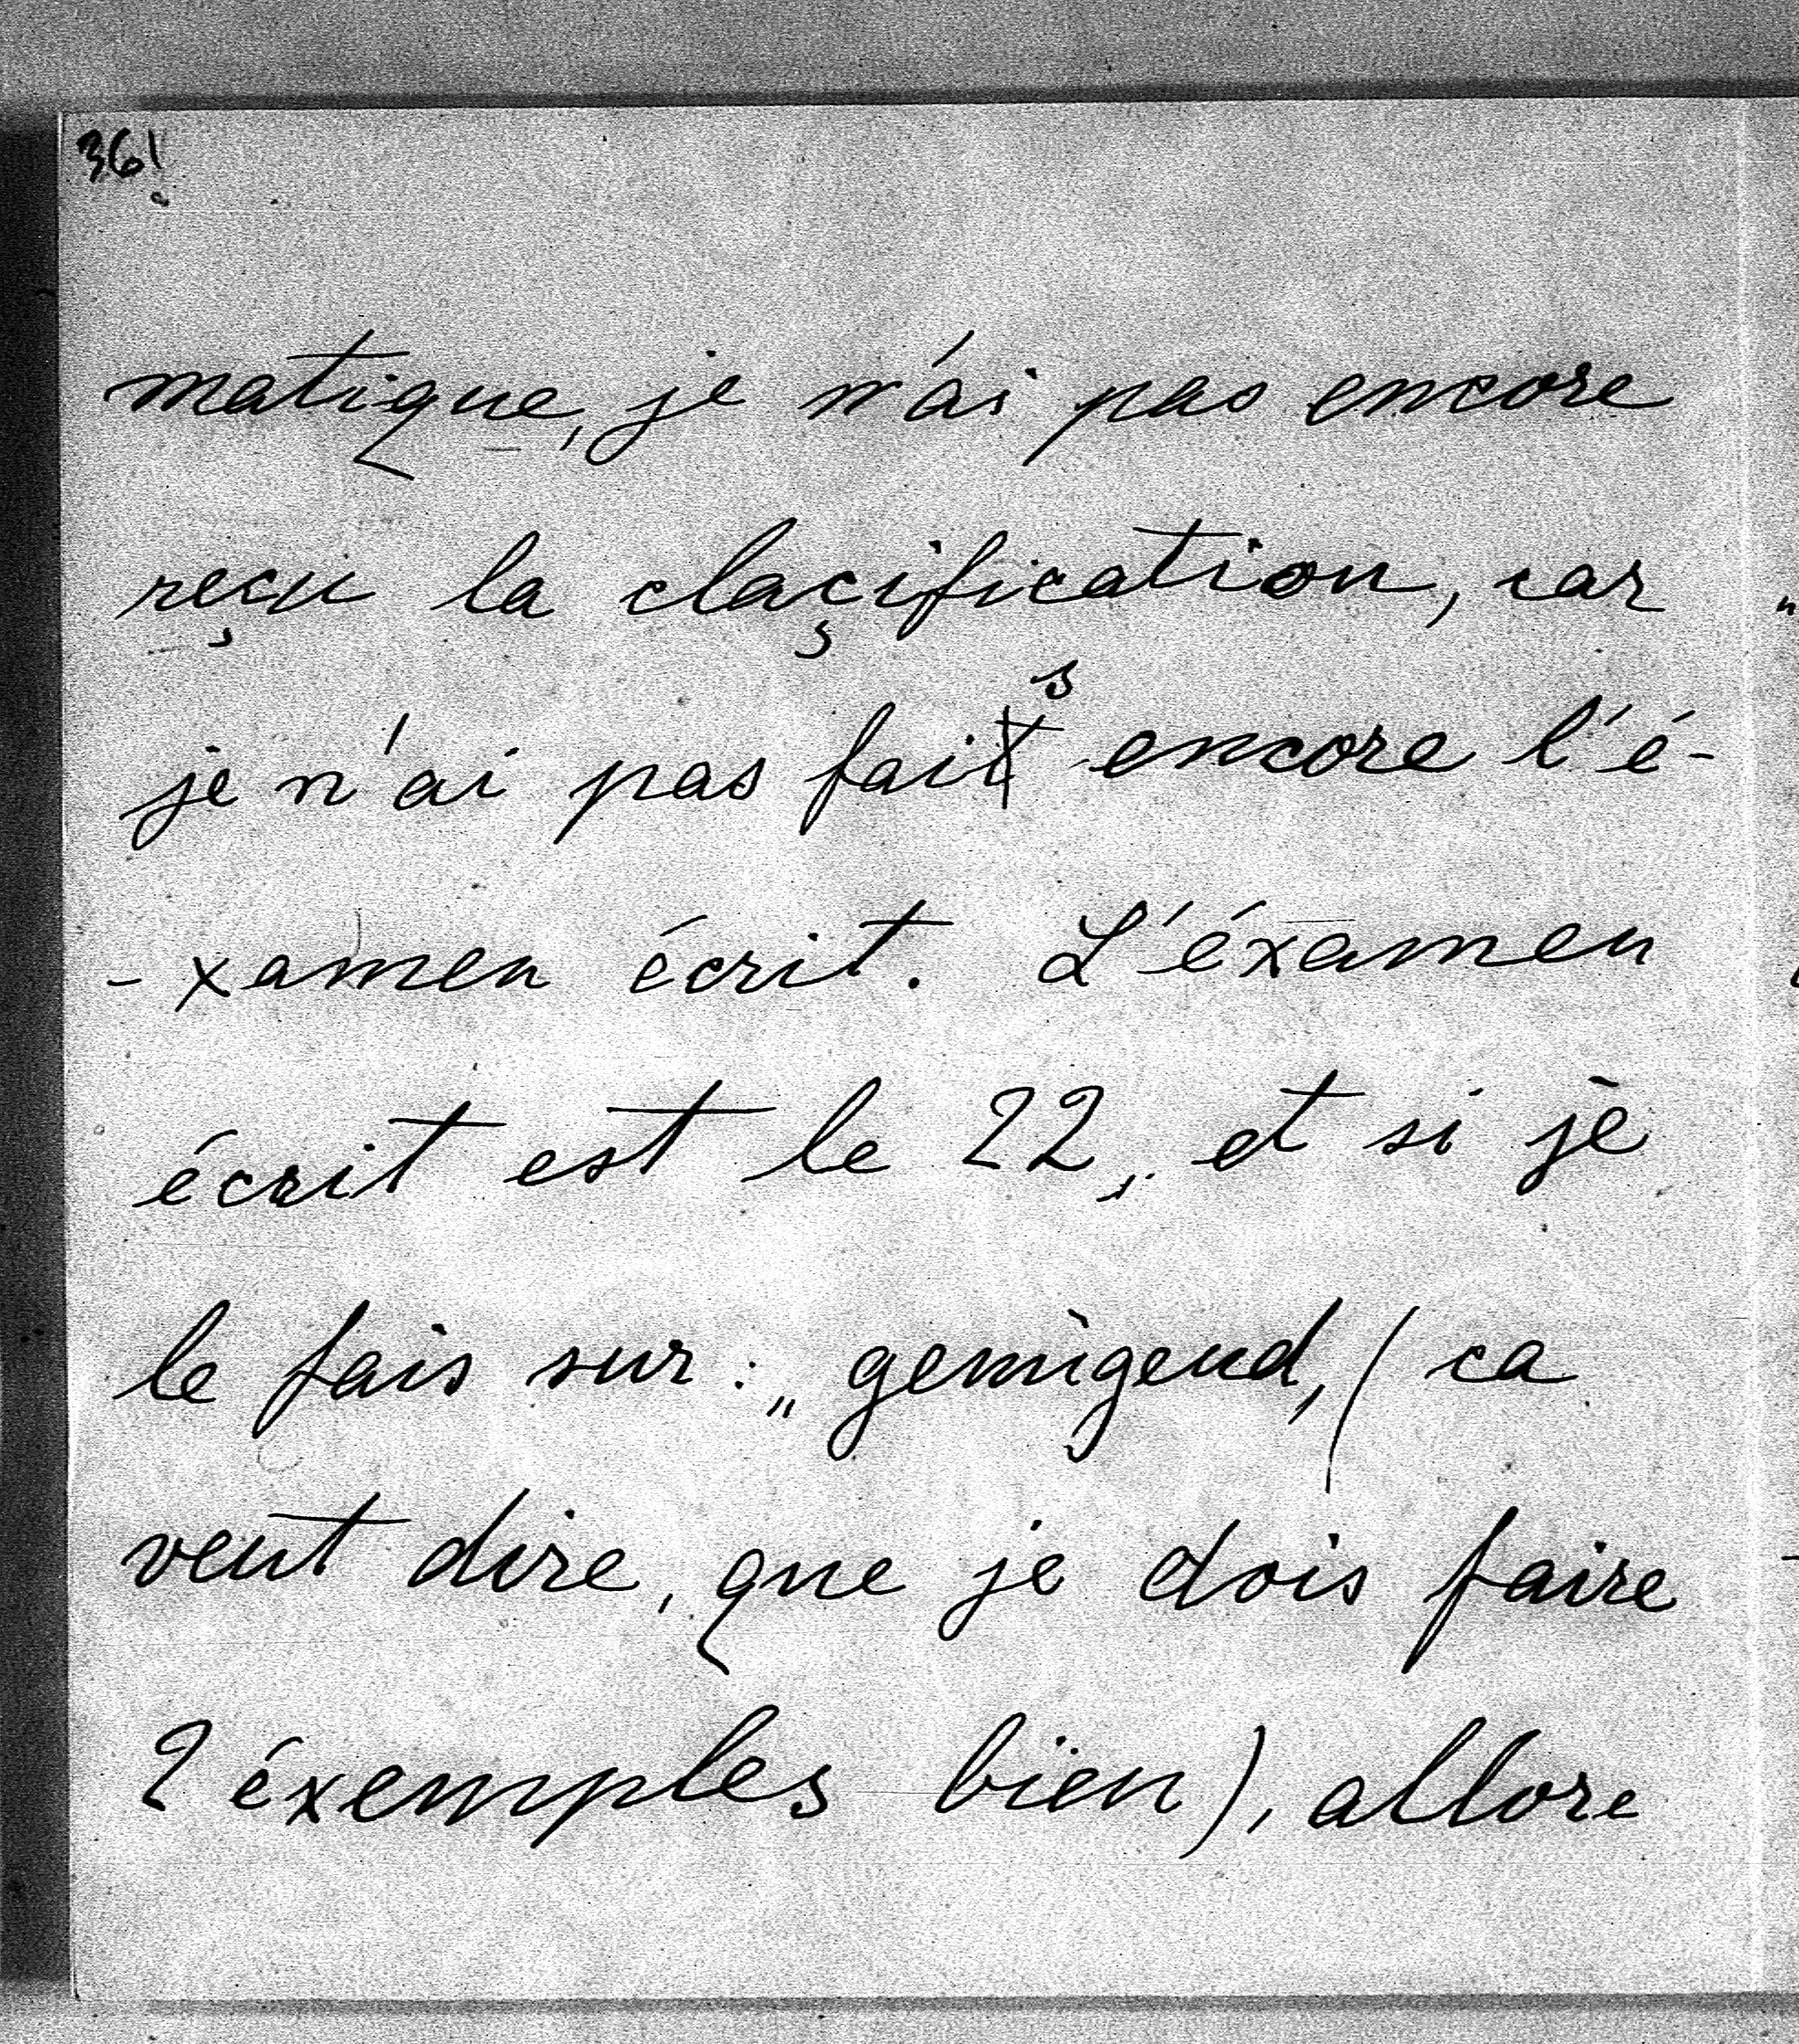 36!
matique, je n'ai pas encore
reçu la claçification, car
je n'ai pas fais encore l'é-
- xamen écrit. L'éxamen
écrit est le 22, et si je
le fais sur: „genügend, (ca
veut dire, que je dois faire
2 éxemples bien), allore